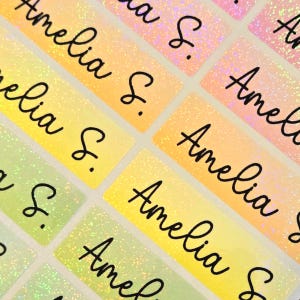 Amelia S.
Amelia S.
Amelia S.
Amelia S.
Amelia S.
Amelia
Amelia